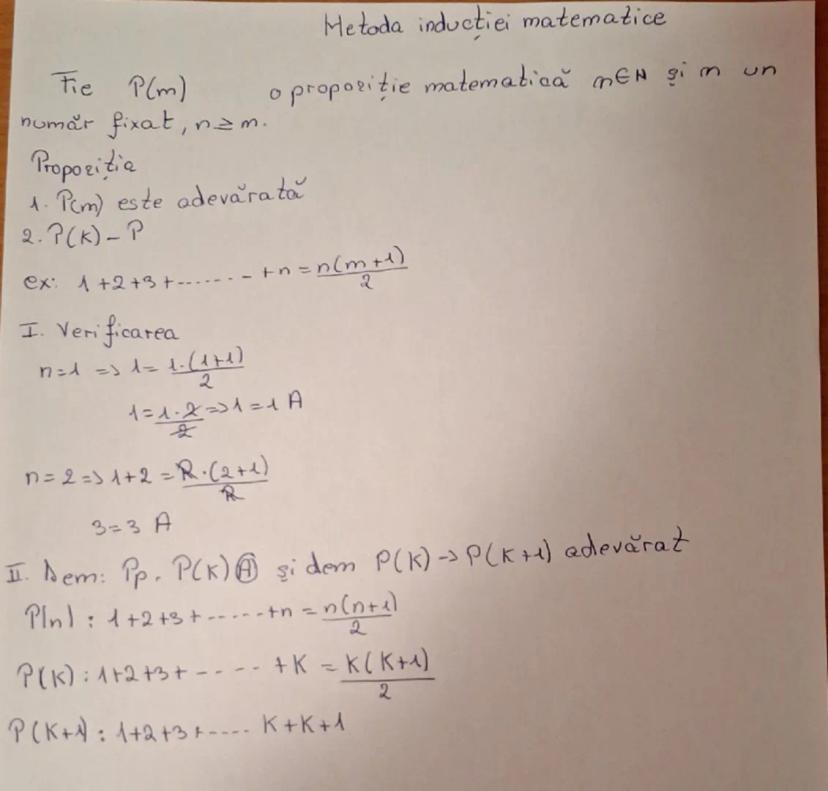 Metoda inducției matematice
Fie P(m) o propoziție matematică n∈N și m un
număr fixat, n≥m.
Propoziția
1. P(m) este adevărată
2. P(K) – P
ex: 1+2+3+.......- +n = n(m+1)/2
I. Verificarea
n=1 => 1 = 1·(1+1)/2
1 = 1·2/2 => 1 = 1 A
n = 2 => 1+2 = 2·(2+1)/2
3 = 3 A
II. Dem: Pp. P(K) A și dem P(K) -> P(K+1) adevărat
P(n) : 1+2+3+......+n = n(n+1)/2
P(K) : 1+2+3+----- +K = K(K+1)/2
P(K+1) : 1+2+3+..... K+K+1